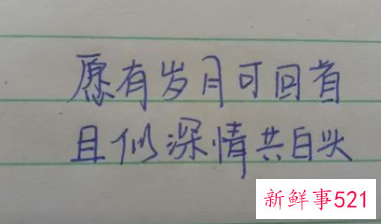 愿有岁月可回首
且似深情共白头
新鲜事521